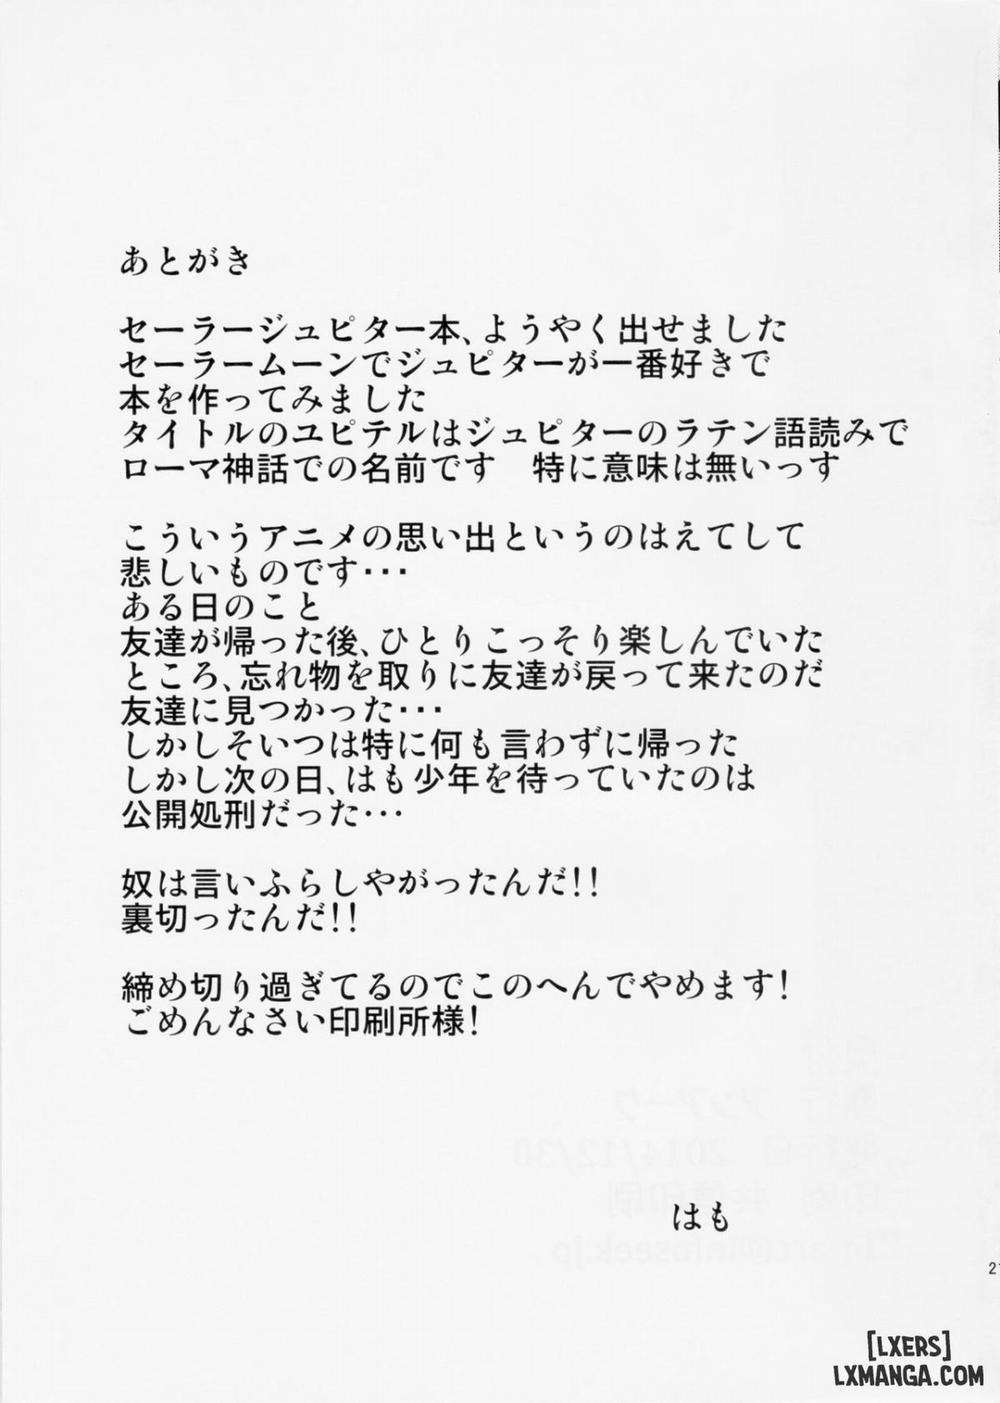 あとがき
セーラージュピター本、ようやく出せました
セーラームーンでジュピターが一番好きで
本を作ってみました
タイトルのユピテルはジュピターのラテン語読みで
ローマ神話での名前です　特に意味は無いっす
こういうアニメの思い出というのはえてして
悲しいものです・・・
ある日のこと
友達が帰った後、ひとりこっそり楽しんでいた
ところ、忘れ物を取りに友達が戻って来たのだ
友達に見つかった・・・
しかしそいつは特に何も言わずに帰った
しかし次の日、はも少年を待っていたのは
公開処刑だった・・・
奴は言いふらしやがったんだ!!
裏切ったんだ!!
締め切り過ぎてるのでこのへんでやめます!
ごめんなさい印刷所様!
2014/12/30
はも
[LXERS]
LXMANGA.COM